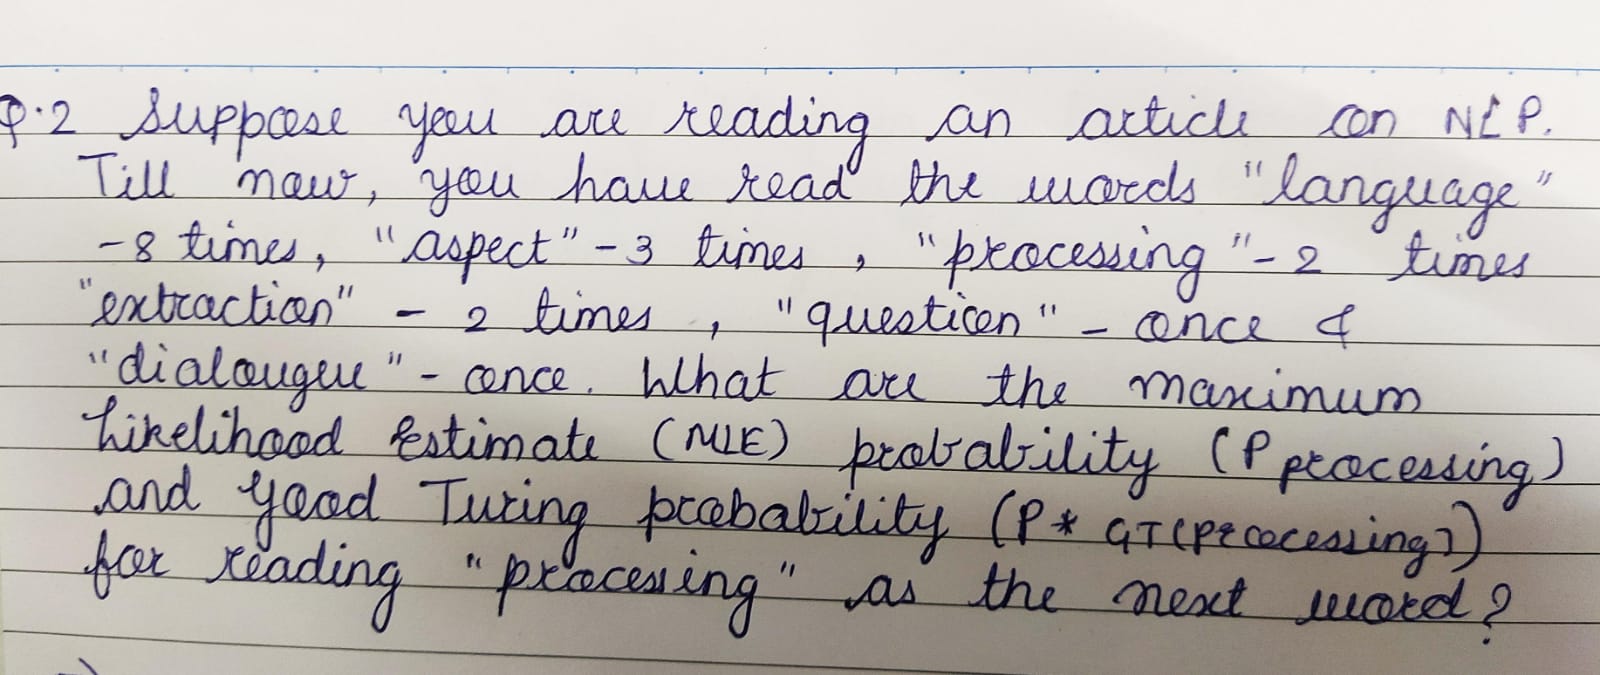 Q.2 Suppose you are reading an article on NLP.
Till now, you have read the words "language"
-8 times, "aspect" -3 times, "processing" - 2 times
"extraction" - 2 times, "question" - once &
"dialougue" - once. What are the maximum
Likelihood Estimate (MLE) probability (P processing)
and Good Turing probability (P* GT(processing))
for reading "processing" as the next word?